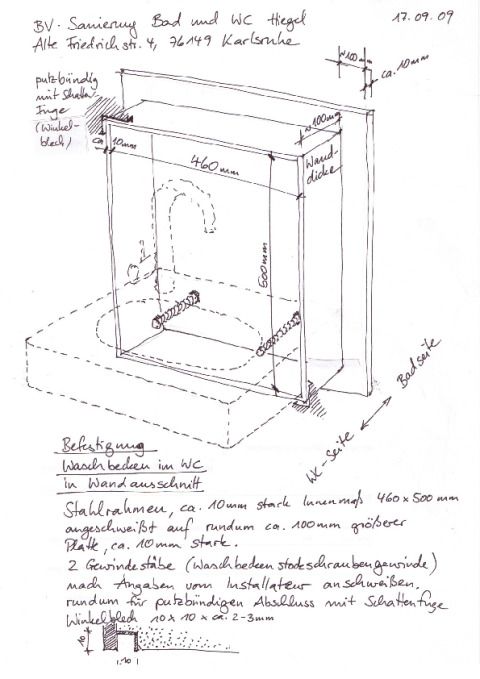 BV. Sanierung Bad und WC Hiegel 17.09.09
Alte Friedrichstr. 4, 76149 Karlsruhe
~100mm
ca. 10mm
putzbündig
mit Schatten-
fuge
(Winkel-
blech)
~100mm
ca 10mm
460mm
Wand-
dicke
500mm
Badseite
WC-Seite
Befestigung
Waschbecken im WC
in Wandausschnitt
Stahlrahmen, ca. 10mm stark Innenmaß 460x500mm
angeschweißt auf rundum ca. 100mm größerer
Platte, ca. 10mm stark.
2 Gewindestäbe (Waschbeckenstockschraubengewinde)
nach Angaben vom Installateur anschweißen.
rundum für putzbündigen Abschluss mit Schattenfuge
Winkelblech 10x10x ca. 2-3mm
10
10